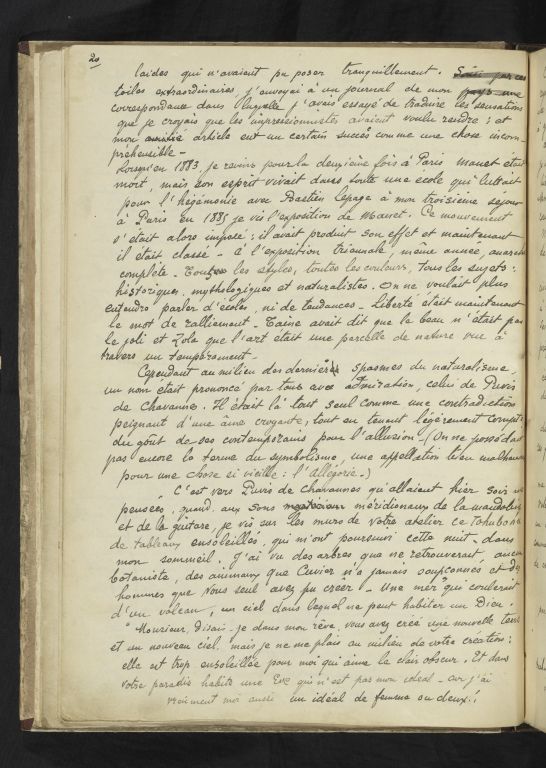 20
laides qui n'avaient pu poser tranquillement.
toiles extraordinaires, j'envoyai à un journal de mon pays une
correspondance dans laquelle j'avais essayé de traduire les sensations
que je croyais que les impressionnistes avaient voulu rendre; et
mon article eut un certain succès comme une chose incom-
préhensible -
Lorsqu'en 1883 je revins pour la deuxième fois à Paris Manet était
mort, mais son esprit vivait dans toute une école qui luttait
pour l'hégémonie avec Bastien Lepage à mon troisième sejour
à Paris en 1885 je vis l'exposition de Manet. Ce mouvement
s'était alors imposé; il avait produit son effet et maintenant
il était classé - à l'exposition triennale, même année, anarchie
complète - Toutes les styles, toutes les couleurs, tous les sujets:
historiques, mythologiques et naturalistes. On ne voulait plus
entendre parler d'écoles, ni de tendances - Liberté était maintenant
le mot de ralliement - Taine avait dit que le beau n'était pas
le joli et Zola que l'art était une parcelle de nature vue à
travers un tempérament -
Cependant au milieu des derniers spasmes du naturalisme,
un nom était prononcé par tous avec admiration, celui de Puvis
de Chavannes. Il était là tout seul comme une contradiction
peignant d'une âme croyante, tout en tenant légèrement compte
du goût de ses contemporains pour l'allusion - (On ne possédait
pas encore le terme du symbolisme, une appellation bien malheureuse
pour une chose si vieille: l'allégorie -)
C'est vers Puvis de Chavannes qu'allaient hier soir mes
pensées, quand, aux sons méridionaux de la mandoline
et de la guitare, je vis sur les murs de votre atelier ce tohubohu
de tableaux ensoleillés, qui m'ont poursuivi cette nuit dans
mon sommeil. J'ai vu des arbres que ne retrouverait aucun
botaniste, des animaux que Cuvier n'a jamais soupçonnés et des
hommes que vous seul avez pu créer - Une mer qui coulerait
d'un volcan, un ciel dans lequel ne peut habiter un Dieu -
" Monsieur, disais-je dans mon rêve, vous avez créé une nouvelle terre
et un nouveau ciel, mais je ne me plais au milieu de votre création:
elle est trop ensoleillée pour moi qui aime le clair obscur. Et dans
votre paradis habite une Eve qui n'est pas mon idéal - car j'ai
vraiment moi aussi un idéal de femme ou deux!